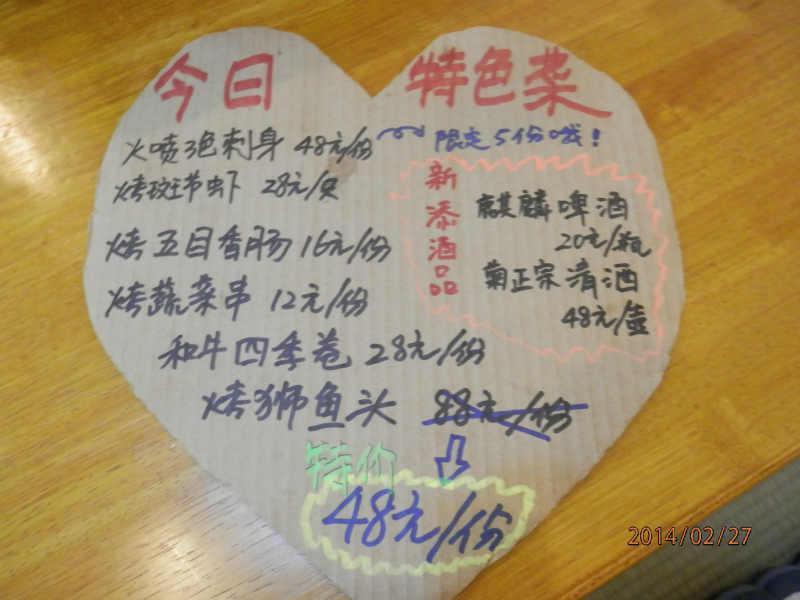 今日 特色菜
火喷 刺身 48元/份
限定5份哦!
烤斑节虾 28元/只
烤五目香肠 16元/份
烤蔬菜串 12元/份
和牛四季卷 28元/份
烤狮鱼头 88元/份
特价
48元/份
新添酒品
麒麟啤酒
20元/瓶
菊正宗清酒
48元/壶
2014/02/27